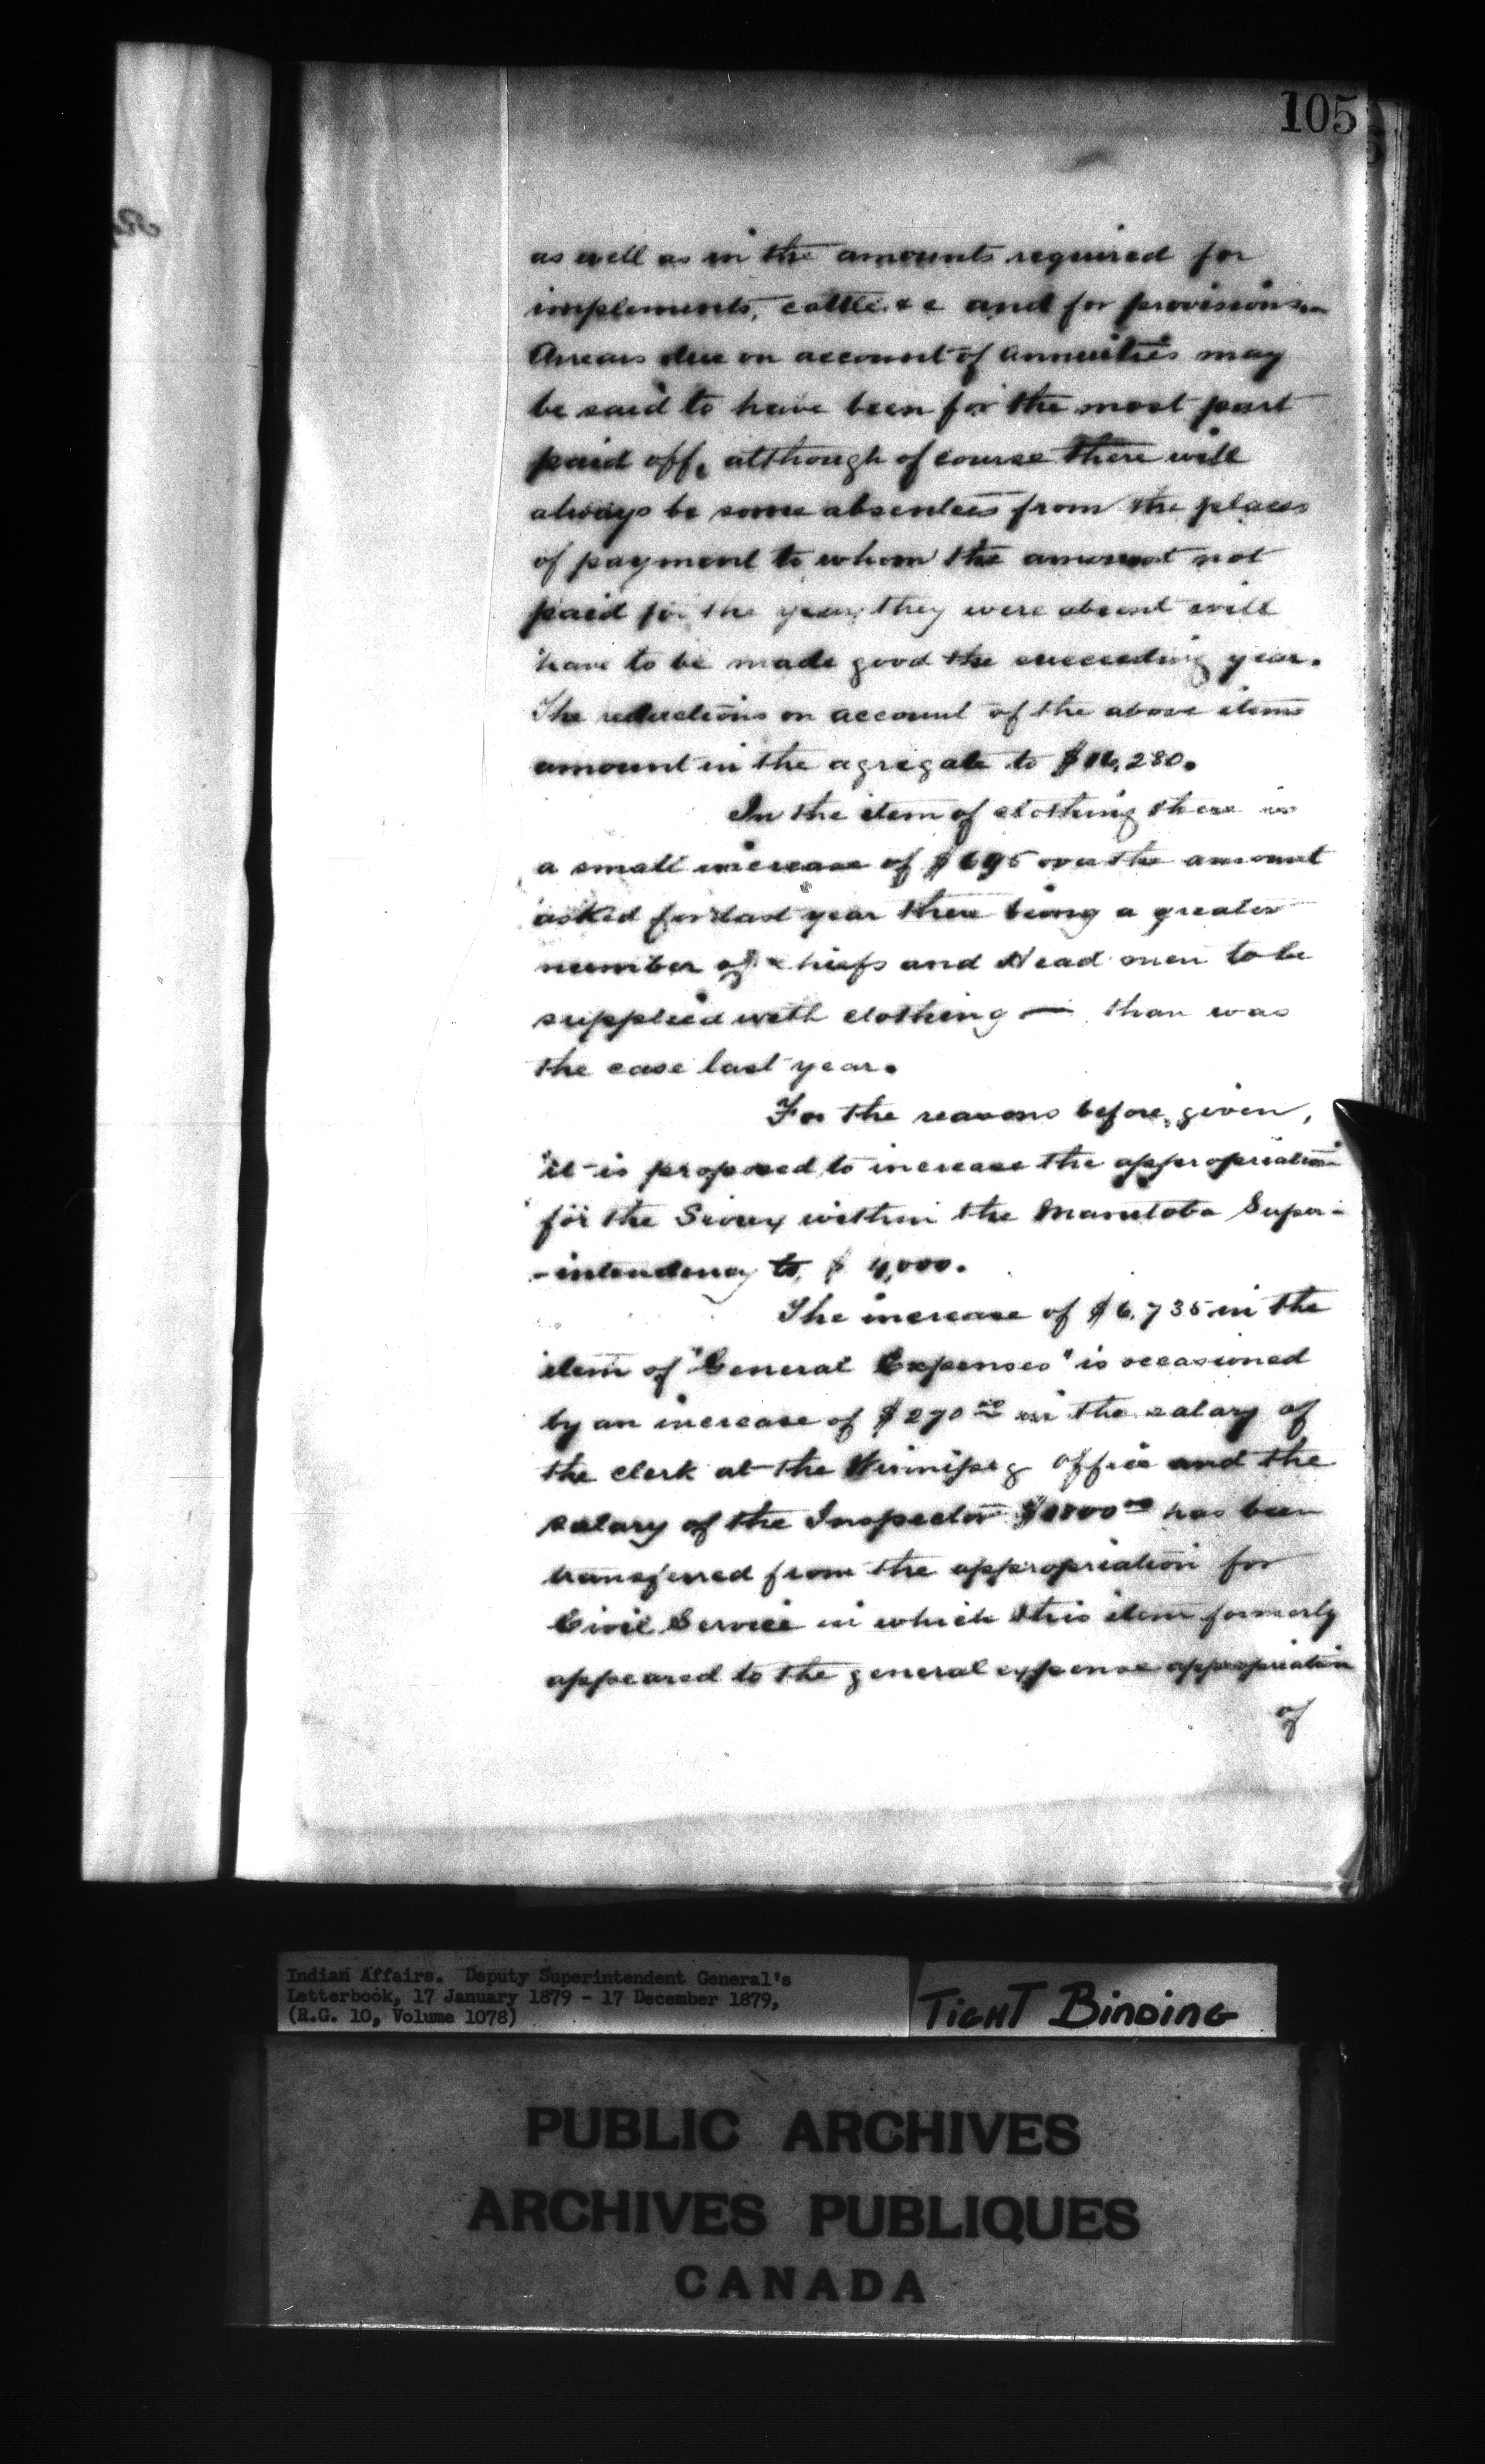 105
as well as in the amounts required for
implements, cattle &c and for provisions.
Arrears due on account of annuities may
be said to have been for the most part
paid off, although of course there will
always be some absentees from the places
of payment to whom the amount not
paid for the year they were absent will
have to be made good the succeeding year.
The reductions on account of the above items
amount in the agregate to $16,280.
In the item of clothing there is
a small increase of over the amount
asked for last year there being a greater
number of chiefs and Head men to be
supplied with clothing — than was
the case last year.
For the reasons before given,
it is proposed to increase the appropriation
for the Sioux within the Manitoba Super-
-intendency to $ 4,000.
The increase of $6,735 in the
item of "General Expenses" is occasioned
by an increase of $270 00 in the salary of
the clerk at the Winnipeg office and the
salary of the Inspector has been
transferred from the appropriation for
Civil Service in which this item formerly
appeared to the general expense appropriation
of
Indian Affairs. Deputy Superintendent General's
Letterbook, 17 January 1879 - 17 December 1879,
(R.G. 10, Volume 1078)
TIGHT BINDING
PUBLIC ARCHIVES
ARCHIVES PUBLIQUES
CANADA